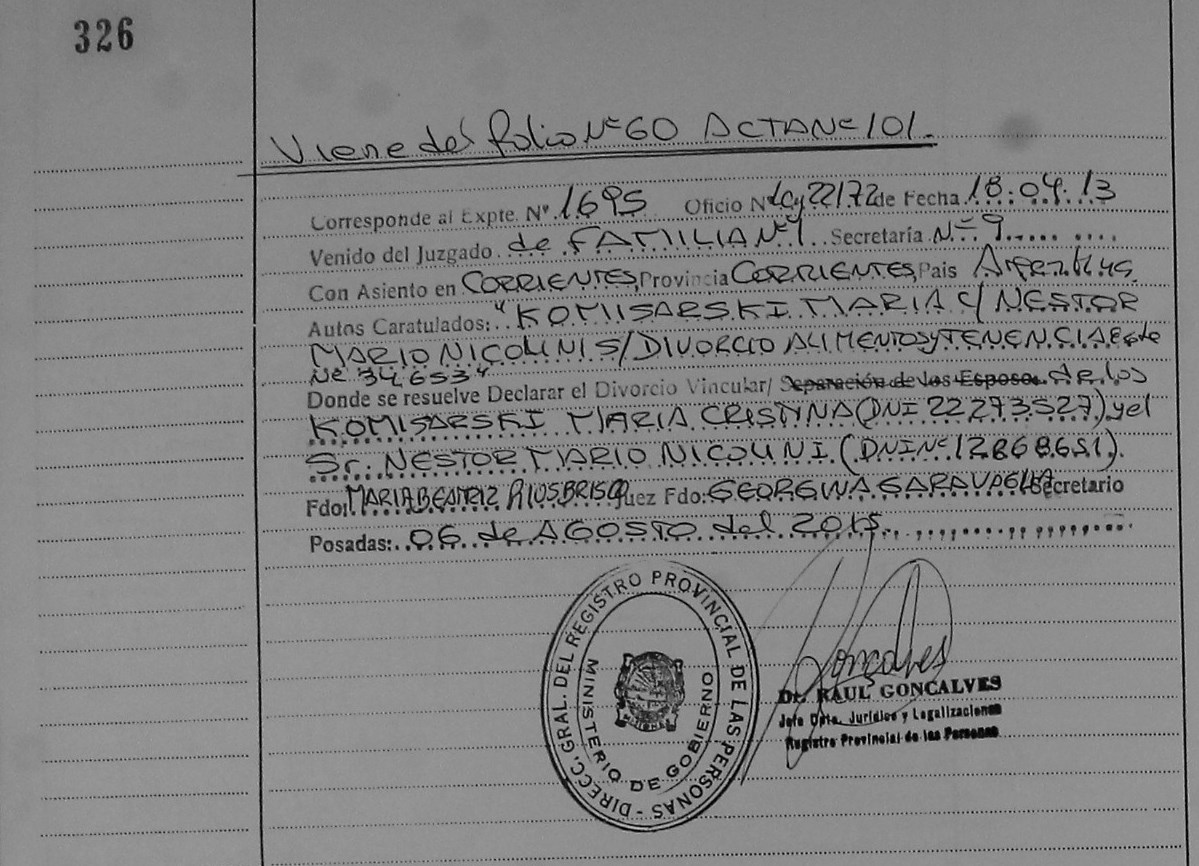 326
Viene del folio Nº 60 ACTA Nº 101.
Corresponde al Expte. Nº 1695 Oficio Nº Ley 22172 de Fecha 18.04.13
Venido del Juzgado de FAMILIA Nº 1 Secretaría Nº 9
Con Asiento en CORRIENTES, Provincia CORRIENTES, Pais Argentina
Autos Caratulados: "KOMISARSKI MARIA C/ NESTOR
MARIO NICOLINI S/ DIVORCIO ALIMENTOS y TENENCIA Expte
Nº 34653"
Donde se resuelve Declarar el Divorcio Vincular/ Separación de los Esposos de los
KOMISARSKI MARIA CRISTINA (DNI 22273527) y el
Sr. NESTOR MARIO NICOLINI (DNI Nº 12868651).
Fdo: MARIA BEATRIZ Juez Fdo: GEORGINA Secretario
Posadas: 06 de AGOSTO del 2015
DIRECC. GRAL. DEL REGISTRO PROVINCIAL DE LAS PERSONAS -
MINISTERIO DE GOBIERNO
Goncalves
Dr. RAUL GONCALVES
Jefe Dpto. Jurídico y Legalizaciones
Registro Provincial de las Personas